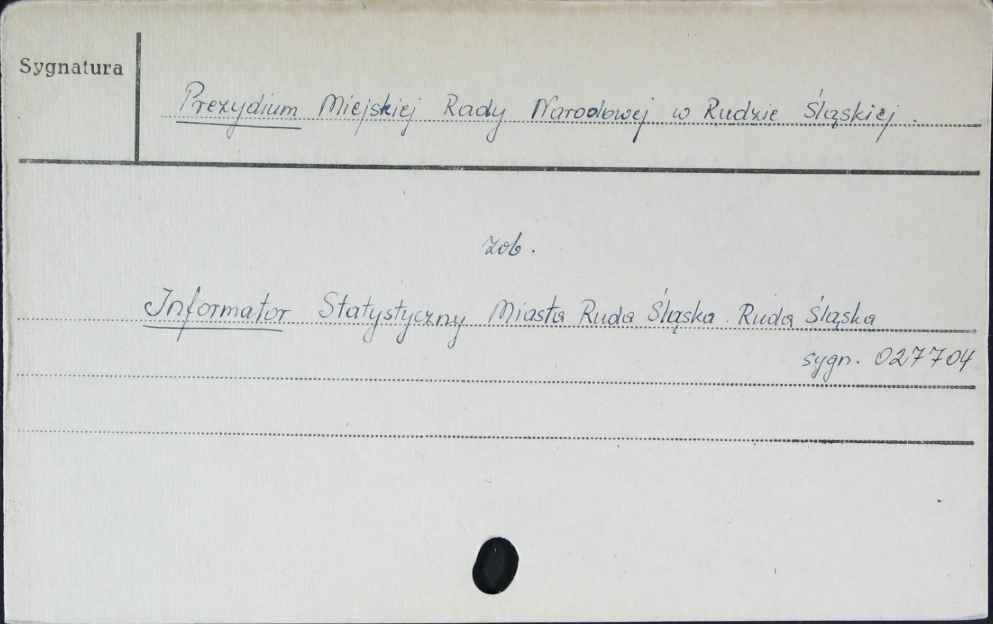 Sygnatura
Prezydium Miejskiej Rady Narodowej w Rudzie Śląskiej.
zob.
Informator Statystyczny Miasta Ruda Śląska. Ruda Śląska
sygn. 027704